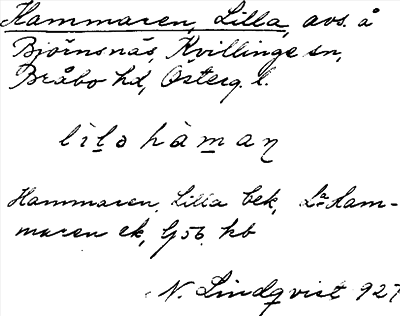 Hammaren, Lilla, avs. å
Björnsnäs, Kvillinge sn,
Bråbo hd, Österg. l.
lìlo hàman
Hammaren, Lilla bek, La Ham-
maren ek, Gj 56 kb
N. Lindqvist 927